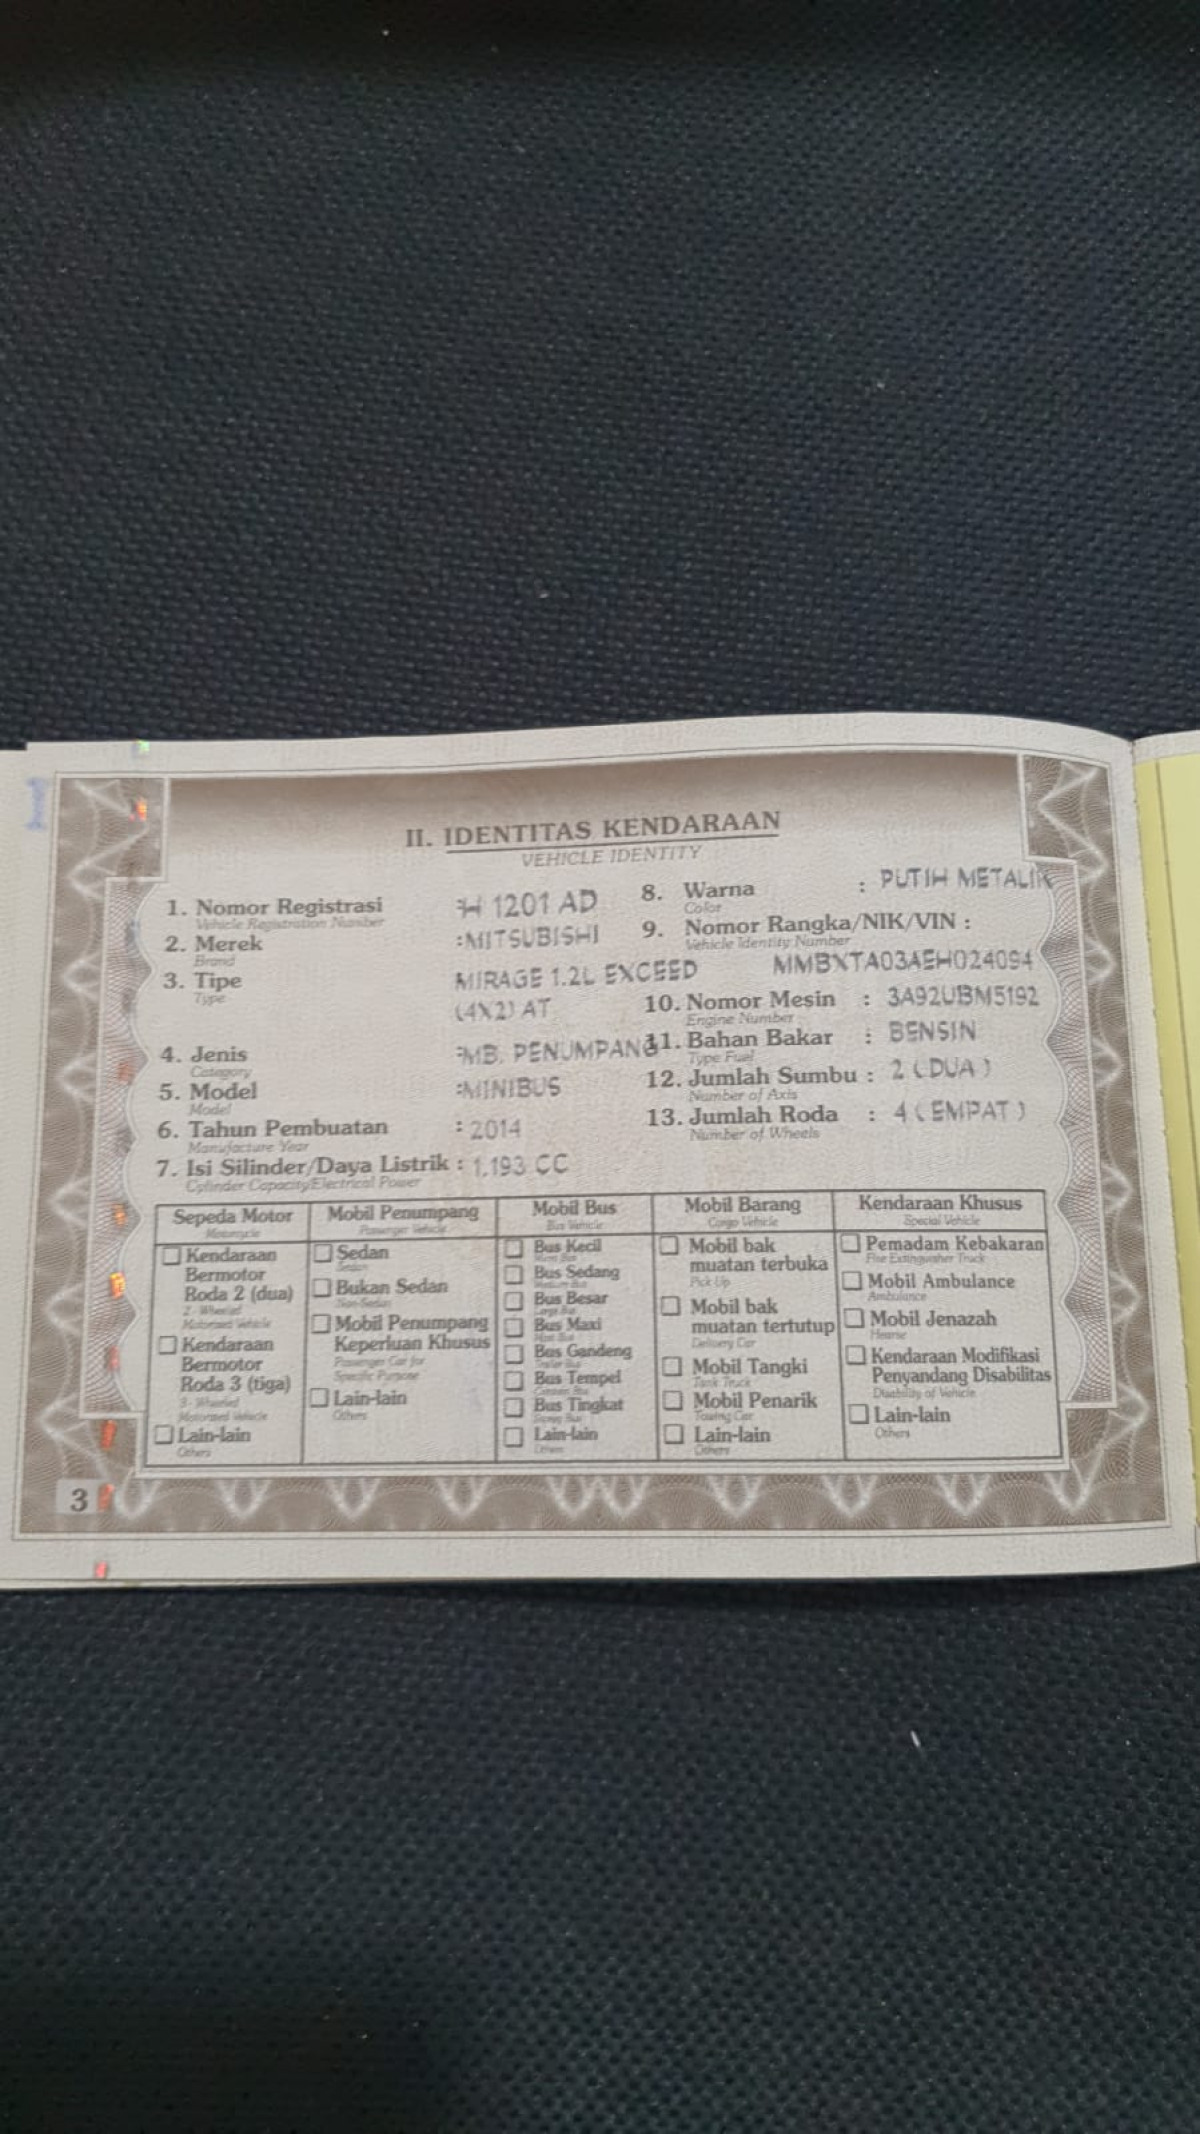 II. IDENTITAS KENDARAAN
VEHICLE IDENTITY
1. Nomor Registrasi : H 1201 AD
Vehicle Registration Number
2. Merek : MITSUBISHI
Brand
3. Tipe MIRAGE 1.2L EXCEED
Type
(4X2) AT
4. Jenis : MB. PENUMPANG
Category
5. Model : MINIBUS
Model
6. Tahun Pembuatan : 2014
Manufacture Year
7. Isi Silinder/Daya Listrik : 1.193 CC
Cylinder Capacity/Electrical Power
8. Warna : PUTIH METALIK
Color
9. Nomor Rangka/NIK/VIN :
Vehicle Identity Number
MMBXTA03AEH024094
10. Nomor Mesin : 3A92UBM5192
Engine Number
11. Bahan Bakar : BENSIN
Type Fuel
12. Jumlah Sumbu : 2 ( DUA )
Number of Axis
13. Jumlah Roda : 4 ( EMPAT )
Number of Wheels
Sepeda Motor
Motorcycle
Kendaraan
Bermotor
Roda 2 (dua)
2 - Wheeled
Motorized Vehicle
Kendaraan
Bermotor
Roda 3 (tiga)
3 - Wheeled
Motorized Vehicle
Lain-lain
Others
Mobil Penumpang
Passenger Vehicle
Sedan
Sedan
Bukan Sedan
Non-Sedan
Mobil Penumpang
Keperluan Khusus
Passenger Car for
Specific Purpose
Lain-lain
Others
Mobil Bus
Bus Vehicle
Bus Kecil
Bus Sedang
Medium Bus
Bus Besar
Large Bus
Bus Maxi
Maxi Bus
Bus Gandeng
Bus Tempel
Bus Tingkat
Lain-lain
Others
Mobil Barang
Cargo Vehicle
Mobil bak
muatan terbuka
Pick Up
Mobil bak
muatan tertutup
Delivery Car
Mobil Tangki
Tank Truck
Mobil Penarik
Towing Car
Lain-lain
Others
Kendaraan Khusus
Special Vehicle
Pemadam Kebakaran
Fire Extinguisher Truck
Mobil Ambulance
Ambulance
Mobil Jenazah
Hearse
Kendaraan Modifikasi
Penyandang Disabilitas
Disability of Vehicle
Lain-lain
Others
3